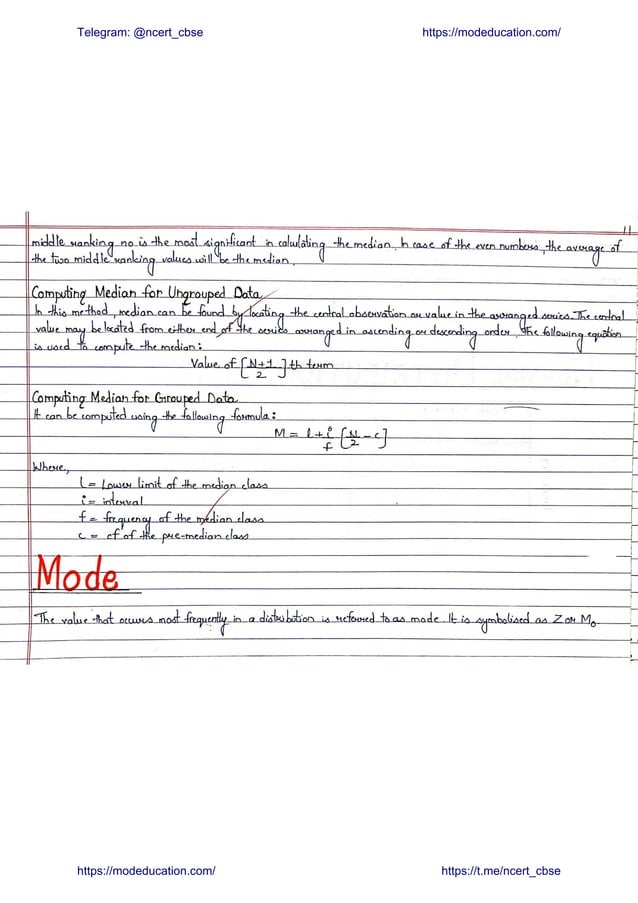 Telegram: @ncert_cbse https://modeducation.com/
11
middle ranking no is the most significant in calculating the median. In case of the even numbers, the average of
the two middle ranking values will be the median.
Computing Median for Ungrouped Data
In this method, median can be found by locating the central observation or value in the arranged series. The central
value may be located from either end of the series arranged in ascending or descending order. The following equation
is used to compute the median:
Value of [N+1/2]th term
Computing Median for Grouped Data
It can be computed using the following formula:
M = l + i/f [N/2 - c]
Where,
l = Lower limit of the median class
i = interval
f = frequency of the median class
c = cf of the pre-median class
Mode
The value that occurs most frequently in a distribution is referred to as mode. It is symbolised as Z or M₀
https://modeducation.com/ https://t.me/ncert_cbse